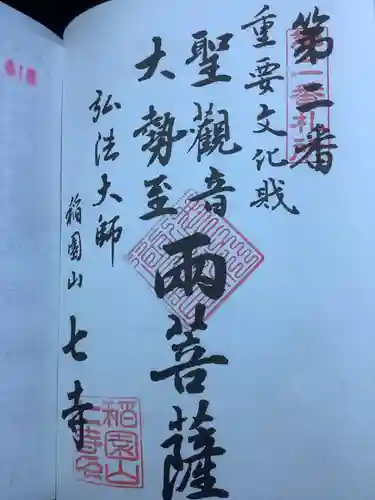 第二番
重要文化財
聖觀音
大勢至
兩菩薩
弘法大師
稲園山
七寺
稲園山